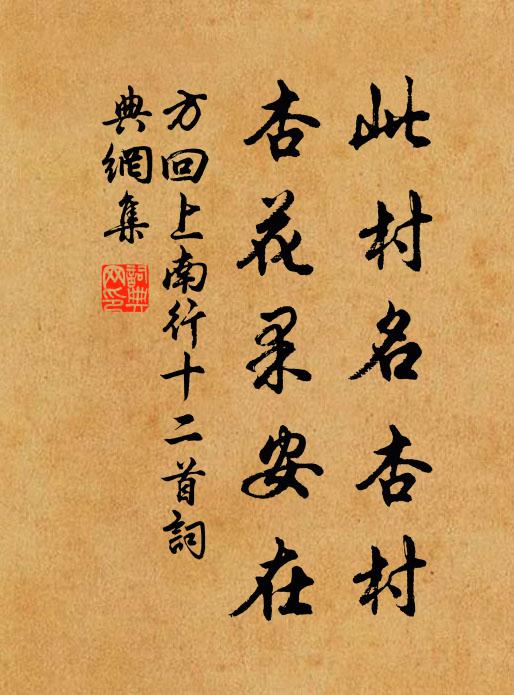 此村名杏村
杏花果安在
方回上南行十二首詞
典網集
詞典
网印